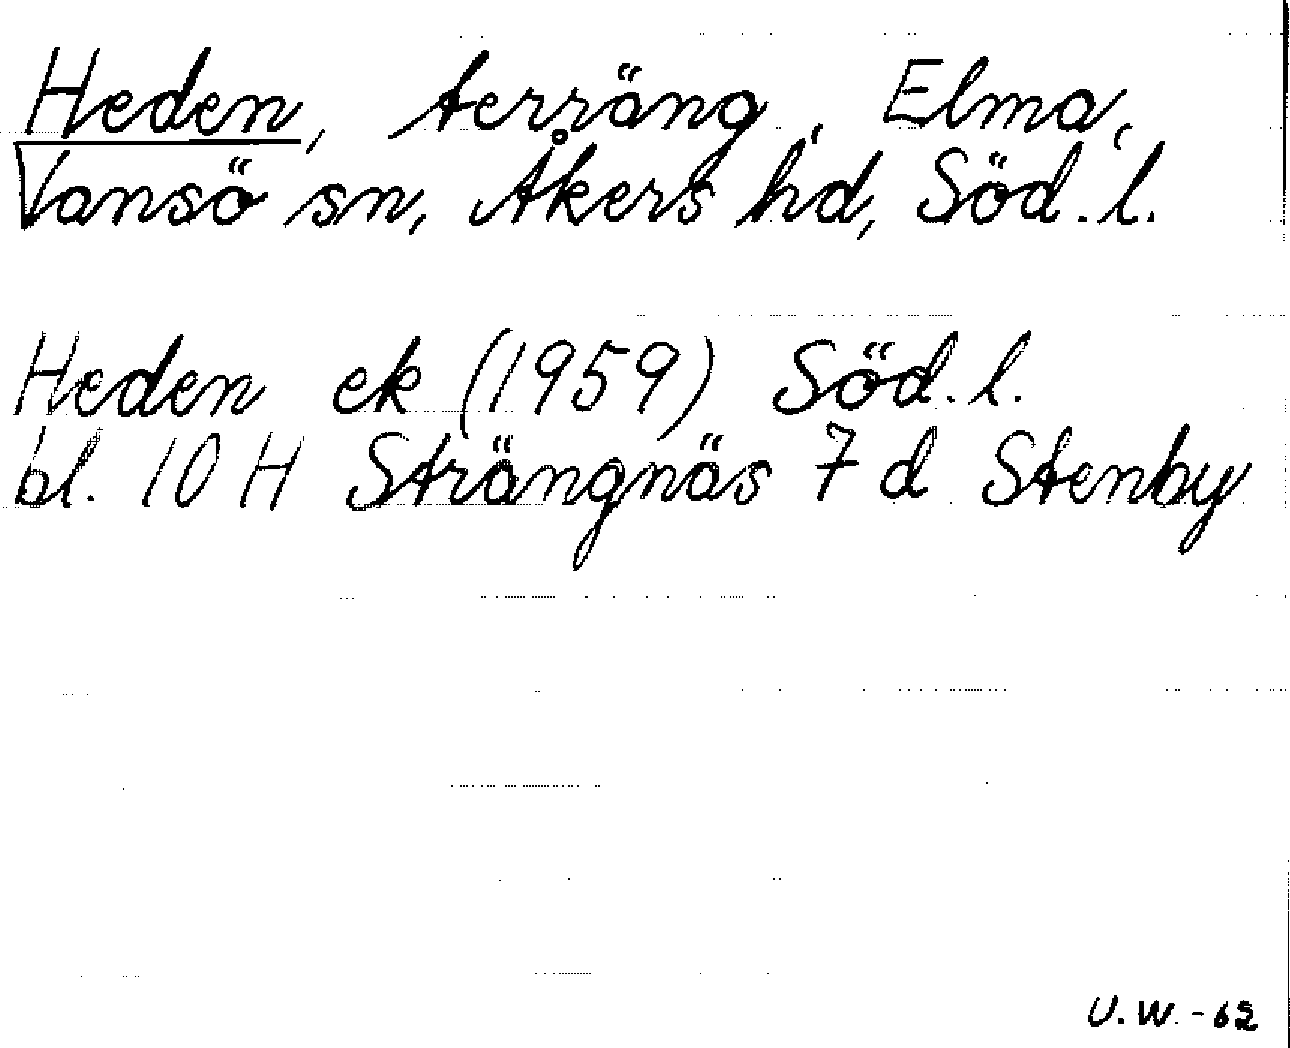 Heden, terräng, Elma,
Vansö sn, Åkers hd, Söd. l.
Heden ek (1959) Söd. l.
bl. 10 H Strängnäs 7 d Stenby
U. W. - 62